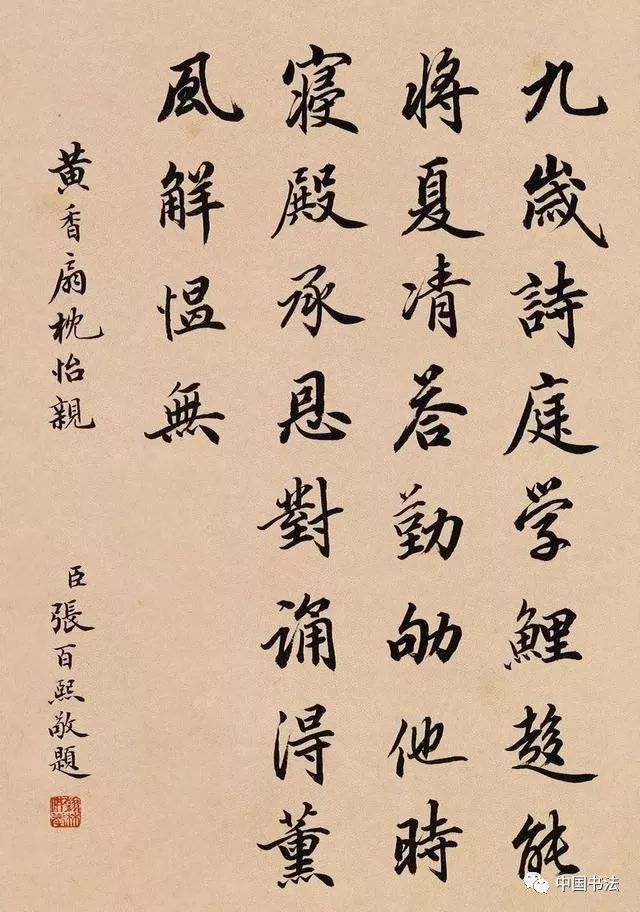 九歲詩庭学鯉趍能
將夏凊荅勤劬他時
寢殿承恩對誦得薰
風解愠無
黄香扇枕怡親
臣張百熙敬題
中国书法